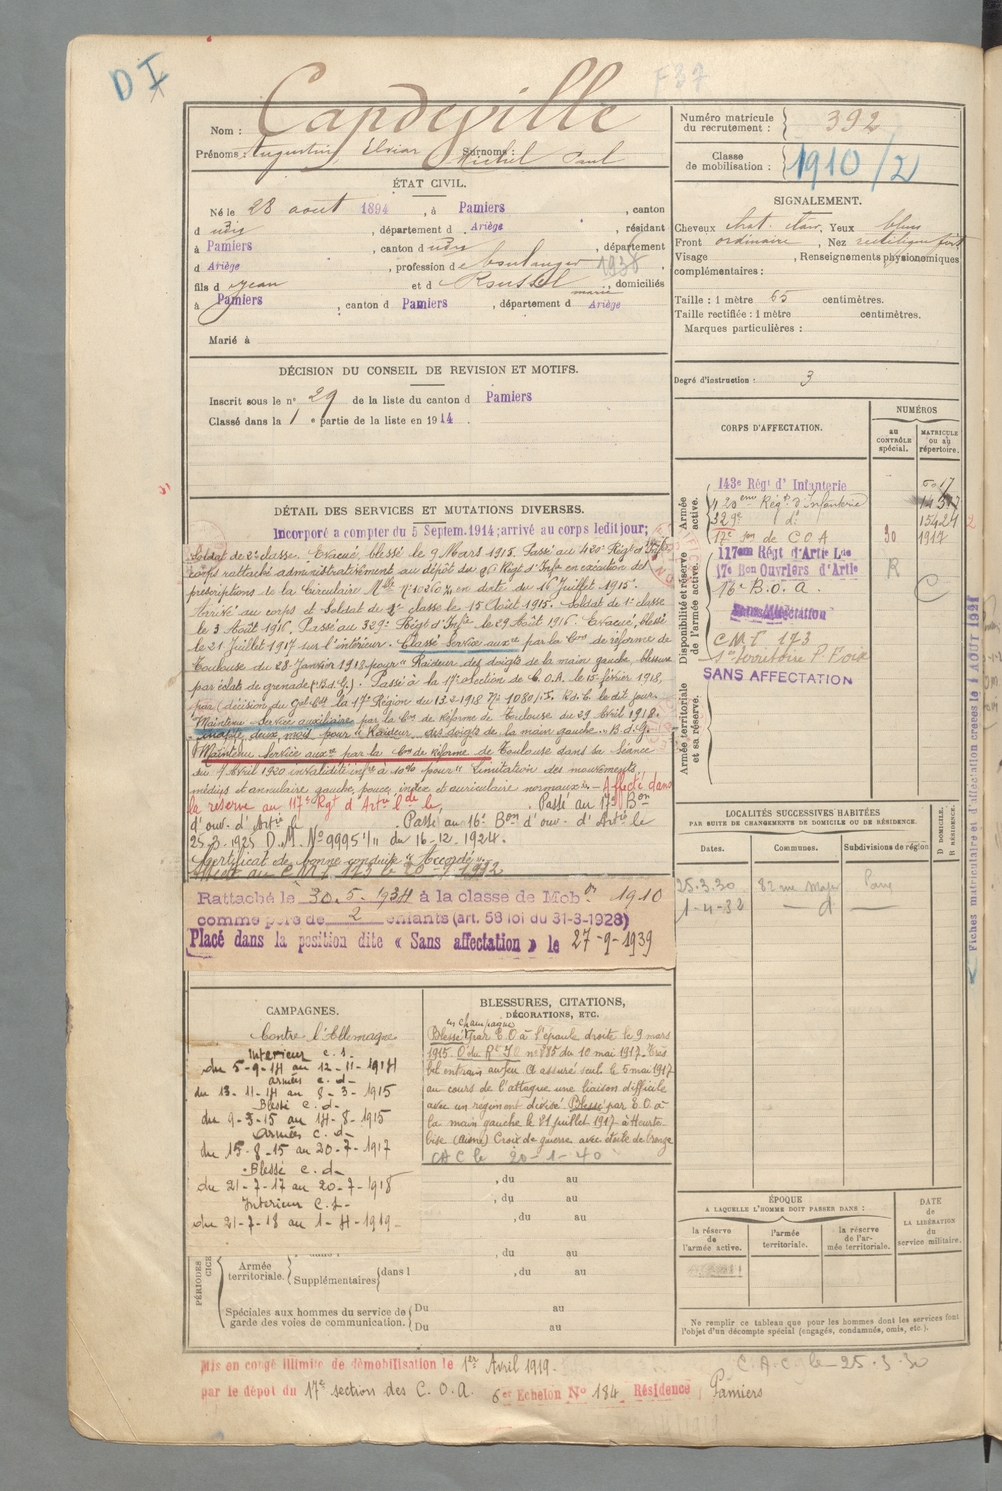 D I
F37
Nom : Capdeville
Prénoms : Augustin Elviar Surnoms : Michel Paul
Numéro matricule du recrutement : 392
Classe de mobilisation : 1910/2
ÉTAT CIVIL.
Né le 28 août 1894, à Pamiers, canton
d udis, département d Ariège, résidant
à Pamiers, canton d udis, département
d Ariège, profession d boulanger 1938
fils d Jean et d Roussel, domiciliés
marié
à Pamiers, canton d Pamiers, département d Ariège
Marié à
SIGNALEMENT.
Cheveux chat. clair, Yeux bleus
Front ordinaire, Nez rectiligne fort
Visage , Renseignements physionomiques
complémentaires :
Taille : 1 mètre 65 centimètres.
Taille rectifiée : 1 mètre centimètres.
Marques particulières :
Degré d'instruction : 3
DÉCISION DU CONSEIL DE REVISION ET MOTIFS.
Inscrit sous le n° 29 de la liste du canton d Pamiers
Classé dans la 1e partie de la liste en 1914.
DÉTAIL DES SERVICES ET MUTATIONS DIVERSES.
Incorporé a compter du 5 Septem. 1914; arrivé au corps ledit jour;
Soldat de 2e classe. Evacué, blessé le 9 Mars 1915. Passé au 420e Régt d'Infie
corps rattaché administrativement au dépôt du 96 Régt d'Infie en exécution des
prescriptions de la Circulaire Mlle en date du 16 Juillet 1915.
Arrivé au corps et Soldat de 2e classe le 15 Août 1915. Soldat de 1e classe
le 3 Août 1916. Passé au 329e Régt d'Infie le 29 Août 1916. Evacué, blessé
le 21 Juillet 1917 sur l'intérieur. Classé Service auxre par la Con de réforme de
Toulouse du 28 Janvier 1918 pour "Raideur des doigts de la main gauche, blessure
par éclats de grenade (B.d.G). Passé à la 17e section de C.O.A. le 15 février 1918,
(décision du Gal Cdt la 17e Région du 13-2-1918 No 1080/I. le dit jour.
Maintenu Service auxiliaire par la Con de Réforme de Toulouse du 29 Avril 1918.
Inapte deux mois pour "Raideur des doigts de la main gauche" B.d.G.
Maintenu Service auxre par la Con de réforme de Toulouse dans sa séance
du 7 Avril 1920 invalidité infre à 10% pour "Limitation des mouvements,
médius et annulaire gauche, pouce, index et auriculaire normaux". Affecté dans
la réserve au 117e Rgt d'Artie Lde le, . Passé au 17e Bon
d'ouv. d'Artie le . Passé au 16e Bon d'ouv. d'Artie le
25.3.1925 D.M. No 9995 1/11 du 16.12.1924.
Certificat de bonne conduite "Accordé".
Affecté au C M I 173 le 20-7-1932
Rattaché le 30.5.1934 à la classe de Mobon 1910
comme père de 2 enfants (art. 58 loi du 31-3-1928)
Placé dans la position dite « Sans affectation » le 27-9-1939
CORPS D'AFFECTATION.
NUMÉROS
au CONTRÔLE spécial.
MATRICULE ou au répertoire.
Armée active.
143e Régt d'Infanterie
420eme Régt d'Infanterie
329e d°
15424
17e son de C O A 90 1917
Disponibilité et réserve de l'armée active.
117eme Régt d'Artie Lde
17e Bon Ouvriers d'Artie R
16e B.O.A.
Sans affectation
C
C M I 173
Sre Territoire P. Foix
SANS AFFECTATION
Armée territoriale et sa réserve.
LOCALITÉS SUCCESSIVES HABITÉES
PAR SUITE DE CHANGEMENTS DE DOMICILE OU DE RÉSIDENCE.
Dates. Communes. Subdivisions de région D DOMICILE. R RÉSIDENCE.
25.3.30 82 rue Major
1-4-32
Fiches matriculaire et d'affectation créées le 1 AOUT 1921
CAMPAGNES.
Contre l'Allemagne
Intérieur c. s.
du 5-9-14 au 12-11-1914
armées c. d-
du 13-11-14 au 8-3-1915
Blessé c. d-
du 9-3-15 au 14-8-1915
Armées c. d-
du 15-8-15 au 20-7-1917
Blessé c. d-
du 21-7-17 au 20-7-1918
Intérieur c. s-
du 21-7-18 au 1-4-1919-
BLESSURES, CITATIONS,
DÉCORATIONS, ETC.
en Champagne
Blessé par E.O à l'épaule droite le 9 mars
1915. O du Rt n° 285 du 10 mai 1917. Très
bel entrain au feu a assuré seul le 5 mai 1917
au cours de l'attaque une liaison difficile
avec un régiment divisé. Blessé par E.O à
la main gauche le 21 juillet 1917 à Heurte
bise (Aisne) Croix de guerre avec étoile de bronze
CAC le 20-1-40
, du au
, du au
, du au
, du au
PÉRIODES
Armée territoriale. Supplémentaires dans l , du au
Spéciales aux hommes du service de garde des voies de communication. Du au
Du au
ÉPOQUE
A LAQUELLE L'HOMME DOIT PASSER DANS :
la réserve de l'armée active. l'armée territoriale. la réserve de l'armée territoriale.
DATE de LA LIBÉRATION du service militaire.
Ne remplir ce tableau que pour les hommes dont les services font
l'objet d'un décompte spécial (engagés, condamnés, omis, etc.).
Mis en congé illimité de démobilisation le 1er Avril 1919.
C.A.C. le 25.3.30
par le dépôt du 17e section des C. O. A. 6e Echelon No 184 Résidence Pamiers